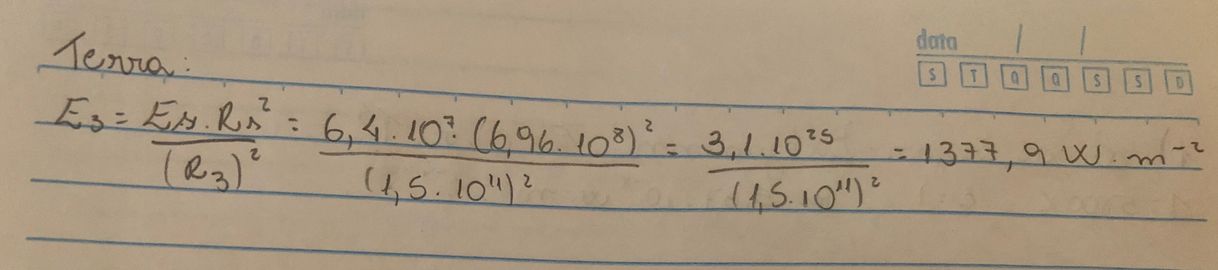 data / /
S T Q Q S S D
Terra:
E₃ = Es.Rs² / (R₃)² = 6,4.10⁷.(6,96.10⁸)² / (1,5.10¹¹)² = 3,1.10²⁵ / (1,5.10¹¹)² = 1377,9 W.m⁻²